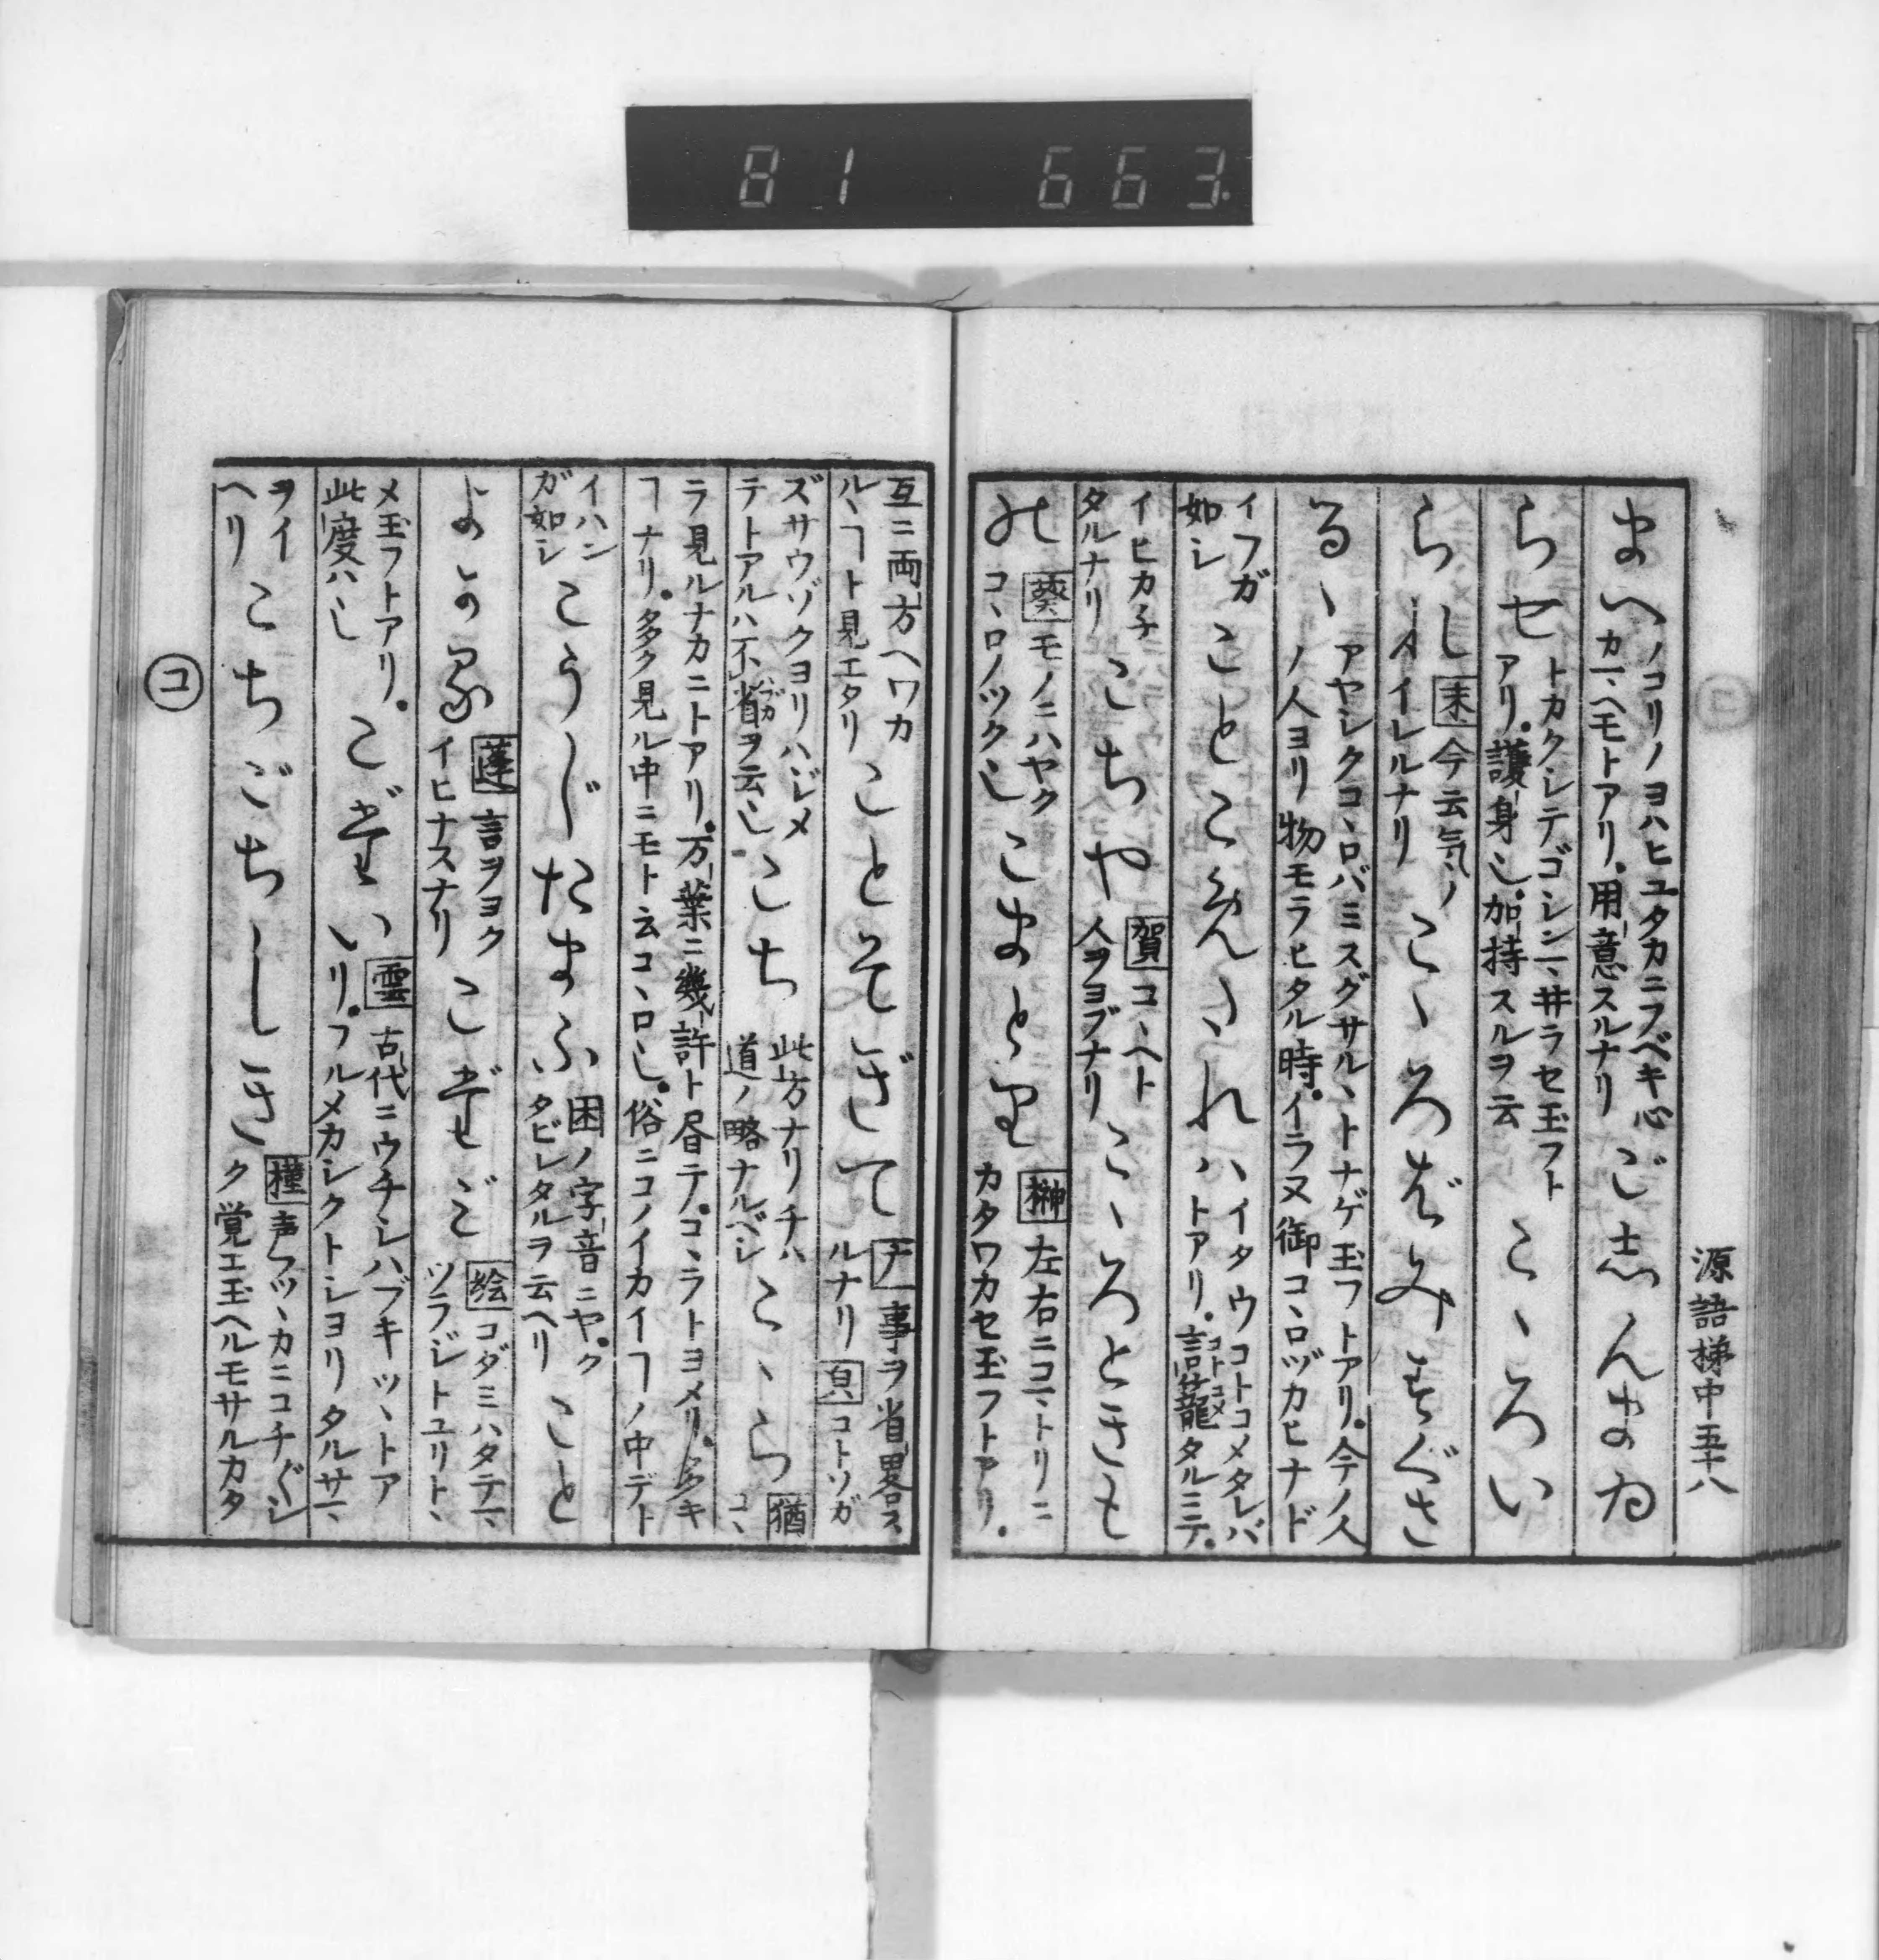 81 663
源語梯中 五十八
まへノコリノヨハヒユタカニフベキ心
カマヘモトアリ。用意スルナリ ごしんまゐ
らせトカクシテゴシンマ井ラセ玉フト
アリ。護身也。加持スルヲ云 こゝろい
られし 末 今云気ノ
イレルナリ こゝろばみすぐさ
るゝ アヤシクコヽロバミスグサルヽトナゲ玉フトアリ。今ノ人
ノ人ヨリ物モラヒタル時。イラヌ御コヽロヅカヒナド
イフガ
如シ ことこめられ ハイタウコトコメタレバ
トアリ。言籠タルミテ。
イヒカ子
タルナリ こちや 賀 コヽヘト
人ヲヨブナリ こゝろときも
の 葵 モノニハヤク
コヽロノツク也 こまとり 榊 左右ニコマトリニ
カタワカセ玉フトアリ。
互ニ両方ヘワカ
ルヽコト見エタリ ことそぎて 事ヲ省畧ス
ルナリ コトソガ
ズサウゾクヨリハジメ
テトアルハ不省ヲ云也 こち 此方ナリチハ
道ノ略ナルベシ こゝら 猶 コヽ
ラ見ルナカニトアリ。万葉ニ幾許ト昏テ。コヽラトヨメリ。多キ
コナリ。多ク見ル中ニモト云コヽロ也。俗ニコノイカイコノ中デト
イハン
ガ如シ こうじたまふ 困ノ字音ニヤ。ク
タビレタルヲ云ヘリ こと
よかる 蓬 言ヲヨク
イヒナスナリ こだみ 絵 コダミハタテマ
ツラジトユリトヽ
メ玉フトアリ。
此度ハ也 こだい 雲 古代ニウチシハブキツヽトア
リ。フルメカシクトシヨリタルサマ
ヲイ
ヘリ こちごちしき 橦 声ツヽカニコチぐシ
ク覚エ玉ヘルモサルカタ
コ